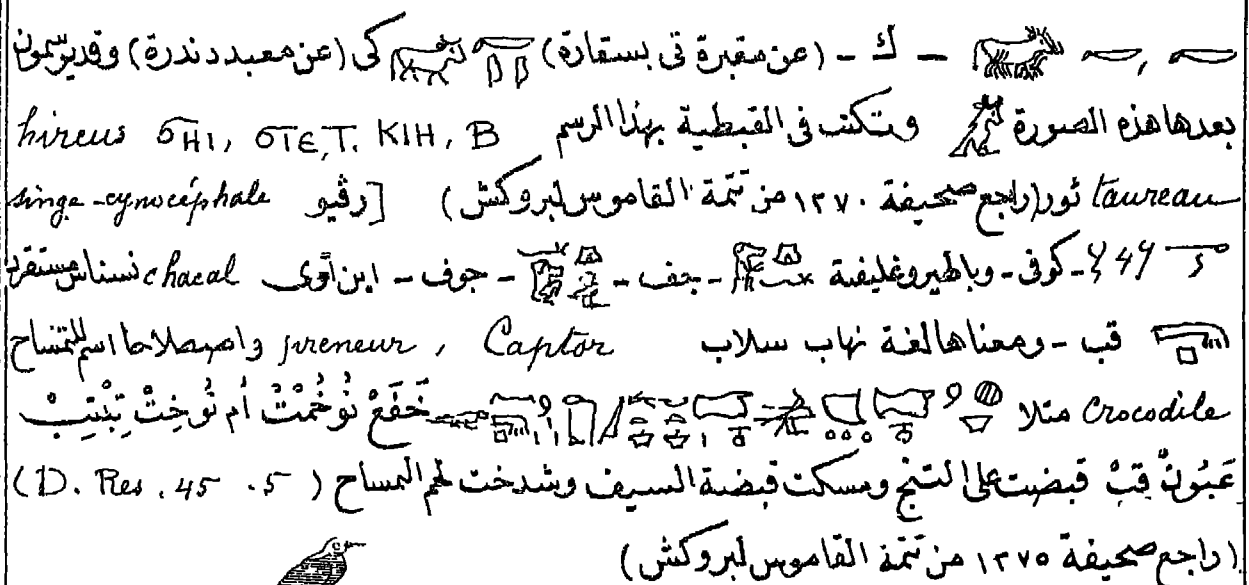 ـ ك ـ (عن مقبرة تى بسقارة) كى (عن معبد دندرة) وقد يرسمون
بعدها هذه الصورة وتكتب فى القبطية بهذا الرسم hircus ϭHI, ϭIE, T. KIH, B
taureau ثور (راجع صحيفة ١٢٧٠ من تتمة القاموس لبروكش) [رڤيو singe-cynocéphale
كوفى ـ وبالهيروغليفية ـ جف ـ ـ جوف ـ ابن آوى chacal نسناس
قب ـ ومعناها لغة نهاب سلاب Captor , preneur واصطلاحا اسم للتمساح
Crocodile مثلا خَفَعْ نُو خُمْتْ أم نُو خِتْ
قِبْ قبضت على ومسكت قبضة السيف وشدخت لحم التمساح (D. Res. 45 . 5)
(راجع صحيفة ١٢٧٥ من تتمة القاموس لبروكش)